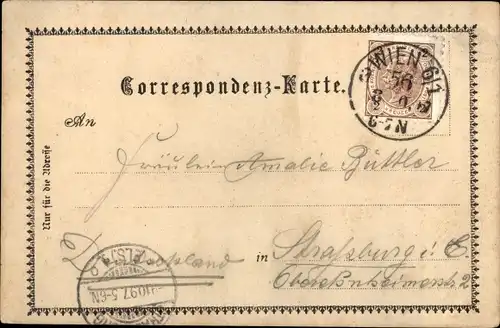 WIEN 6/1
56
6-7N
Correspondenz-Karte.
An
Fräulein Amalie Büttler
Nur für die Adresse
Deutschland
in Straßburg i. E.
2
10 97. 5-6N.